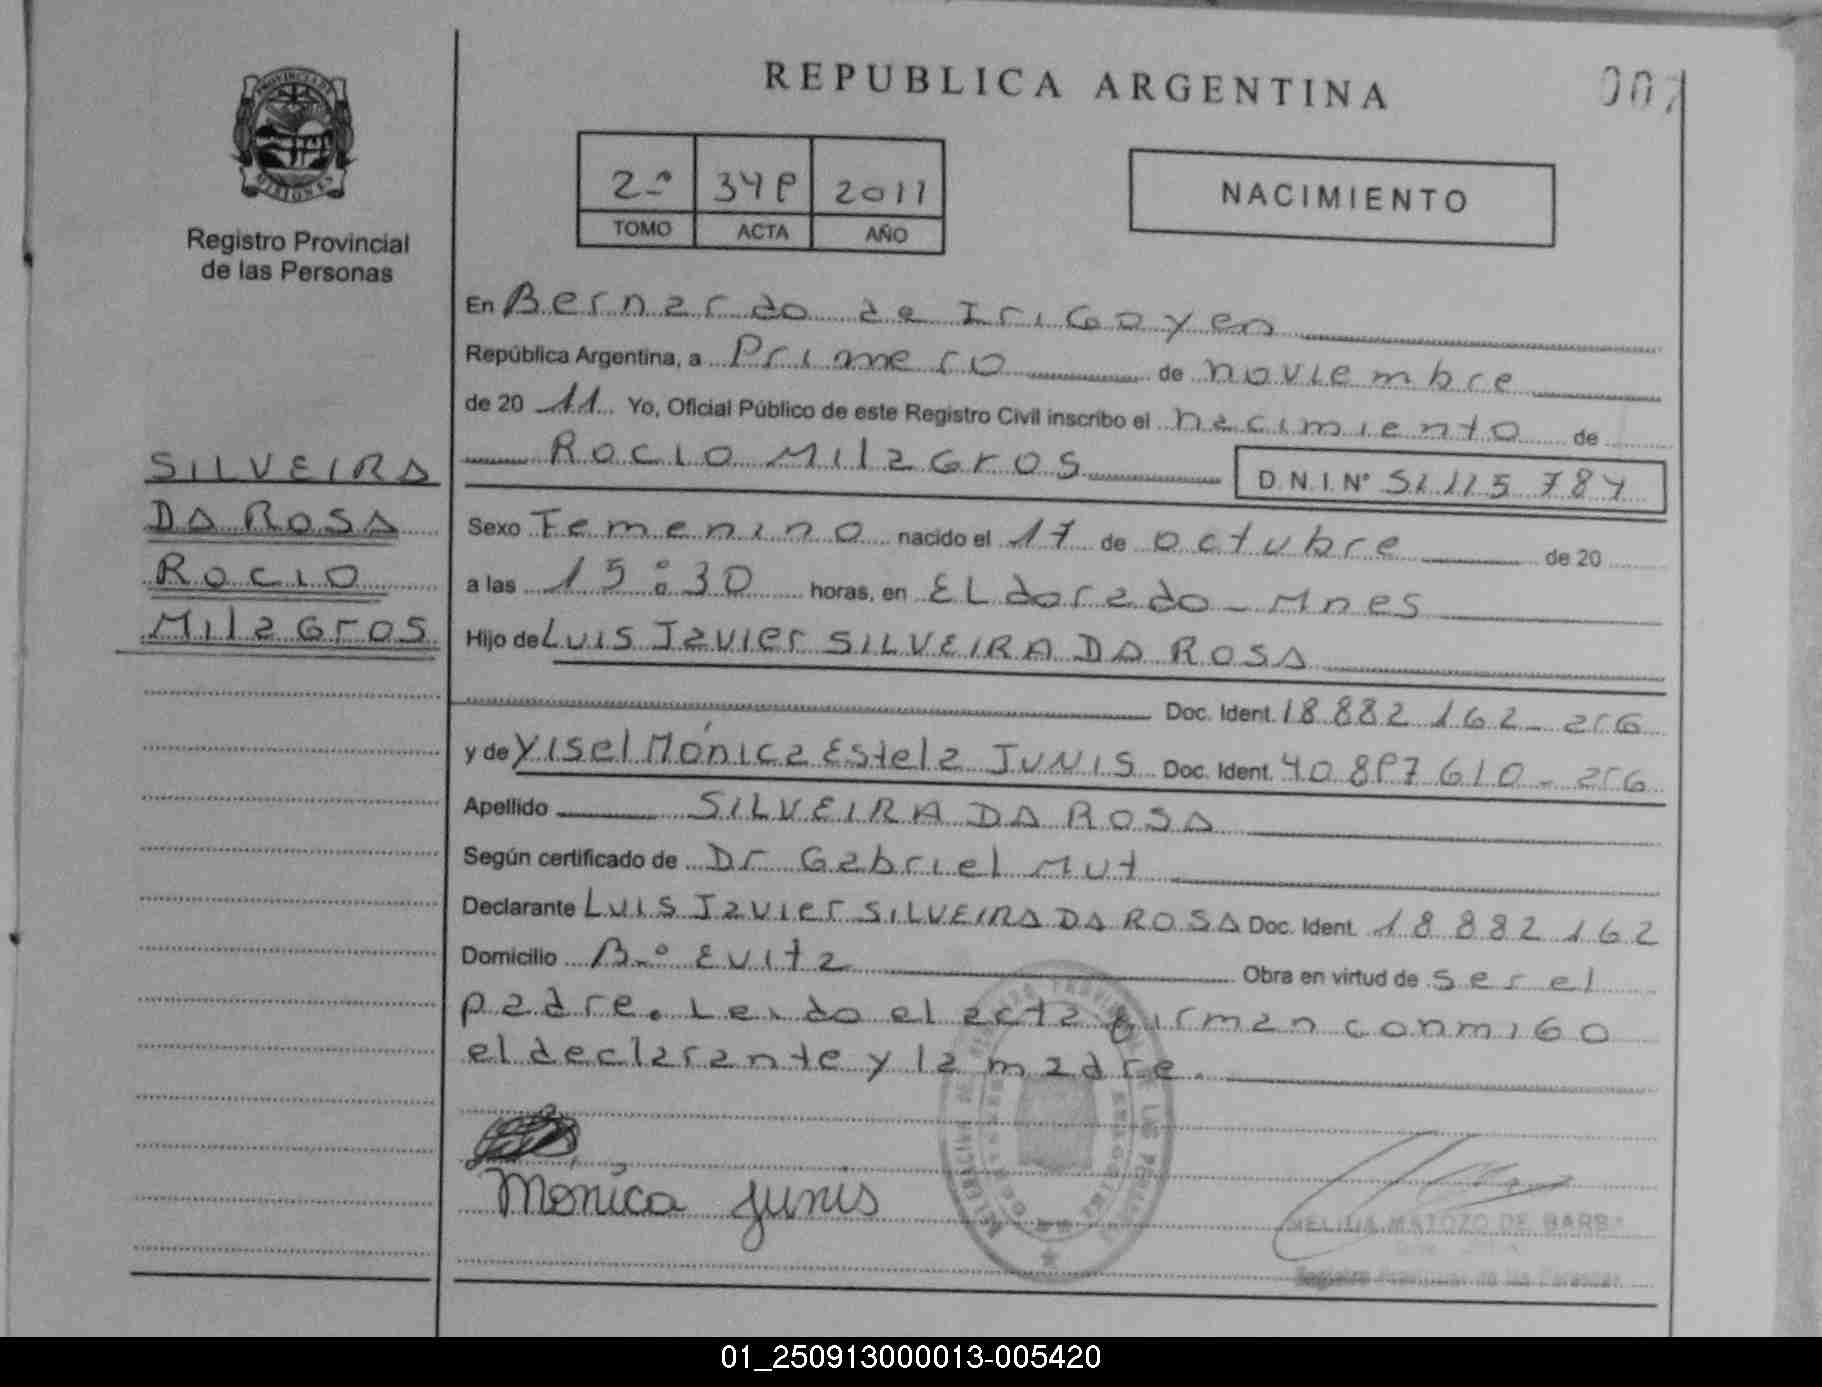 REPUBLICA ARGENTINA
007
PROVINCIA DE
MISIONES
Registro Provincial
de las Personas
2º 349 2011
TOMO ACTA AÑO
NACIMIENTO
En Bernardo de IriGoyen
República Argentina, a Primero de noviembre
de 20 11 Yo, Oficial Público de este Registro Civil inscribo el nacimiento de
Rocio MilaGros D.N.I. Nº 51 115 784
SILVEIRA
DA ROSA
Rocio
MilaGros
Sexo Femenino nacido el 17 de octubre de 20
a las 15:30 horas, en ELdorado - Mnes
Hijo de Luis Javier SILVEIRA DA ROSA
Doc. Ident. 18 882 162 - arG
y de Yisel Mónica Estela JUNIS Doc. Ident. 40 897 610 - arG
Apellido SILVEIRA DA ROSA
Según certificado de Dr Gabriel Mut
Declarante Luis Javier SILVEIRA DA ROSA Doc. Ident. 18 882 162
Domicilio B.º Evita Obra en virtud de ser el
padre. Leido el acta firman conmiGo
el declarante y la madre.
Mónica Junis
MELIDA MATOZO DE BARB
Registro Provincial de las Personas
01_250913000013-005420